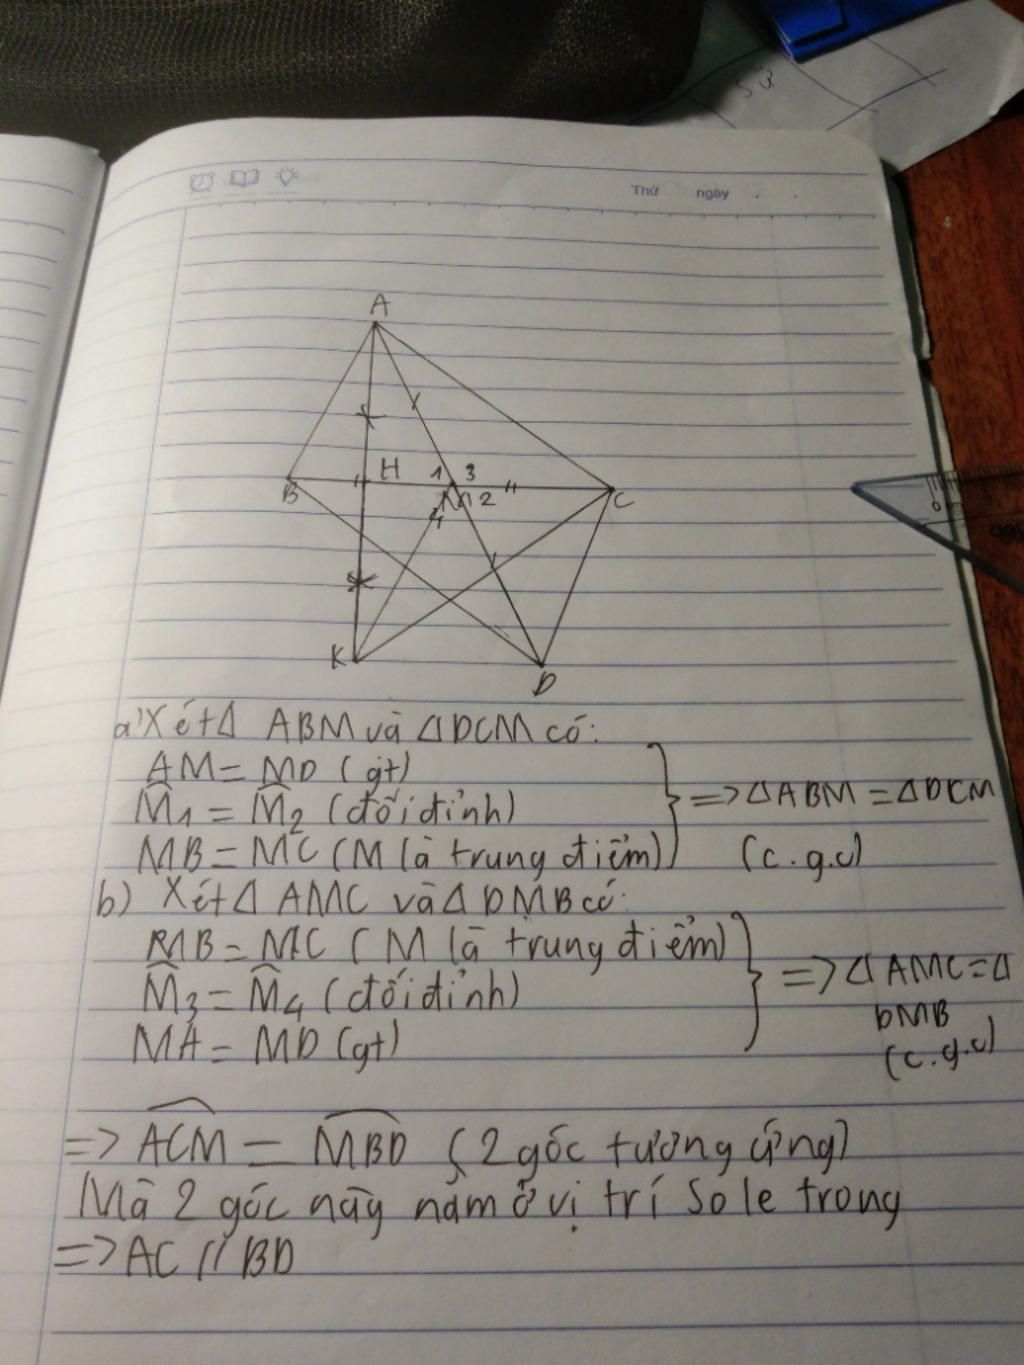 Thứ ngày
A
B
H
1 3
M 2
4
C
K
D
a) Xét Δ ABM và ΔDCM có:
AM = MD (gt)
M̂1 = M̂2 (đối đỉnh) => ΔABM = ΔDCM
MB = MC (M là trung điểm) (c.g.c)
b) Xét Δ AMC và Δ DMB có:
MB = MC (M là trung điểm)
M̂3 = M̂4 (đối đỉnh) => Δ AMC = Δ
MA = MD (gt) DMB
(c.g.c)
=> ACM = MBD (2 góc tương ứng)
Mà 2 góc này nằm ở vị trí so le trong
=> AC // BD
0